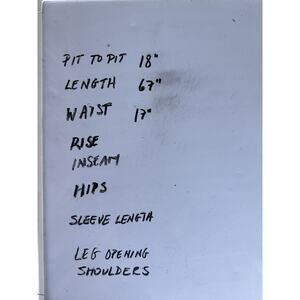 PIT TO PIT 18"
LENGTH 67"
WAIST 17"
RISE
INSEAM
HIPS
SLEEVE LENGTH
LEG OPENING
SHOULDERS